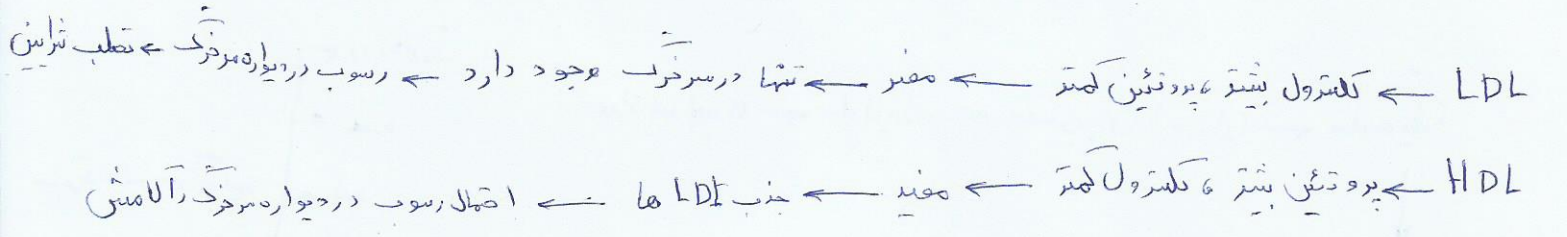 LDL ← کلسترول بیشتر، پروتئین کمتر ← مضر ← تنها در سرخرگ وجود دارد ← رسوب در دیواره سرخرگ ← تصلب شرایین
HDL ← پروتئین بیشتر، کلسترول کمتر ← مفید ← جذب LDL ها ← احتمال رسوب در دیواره سرخرگ را کاهش